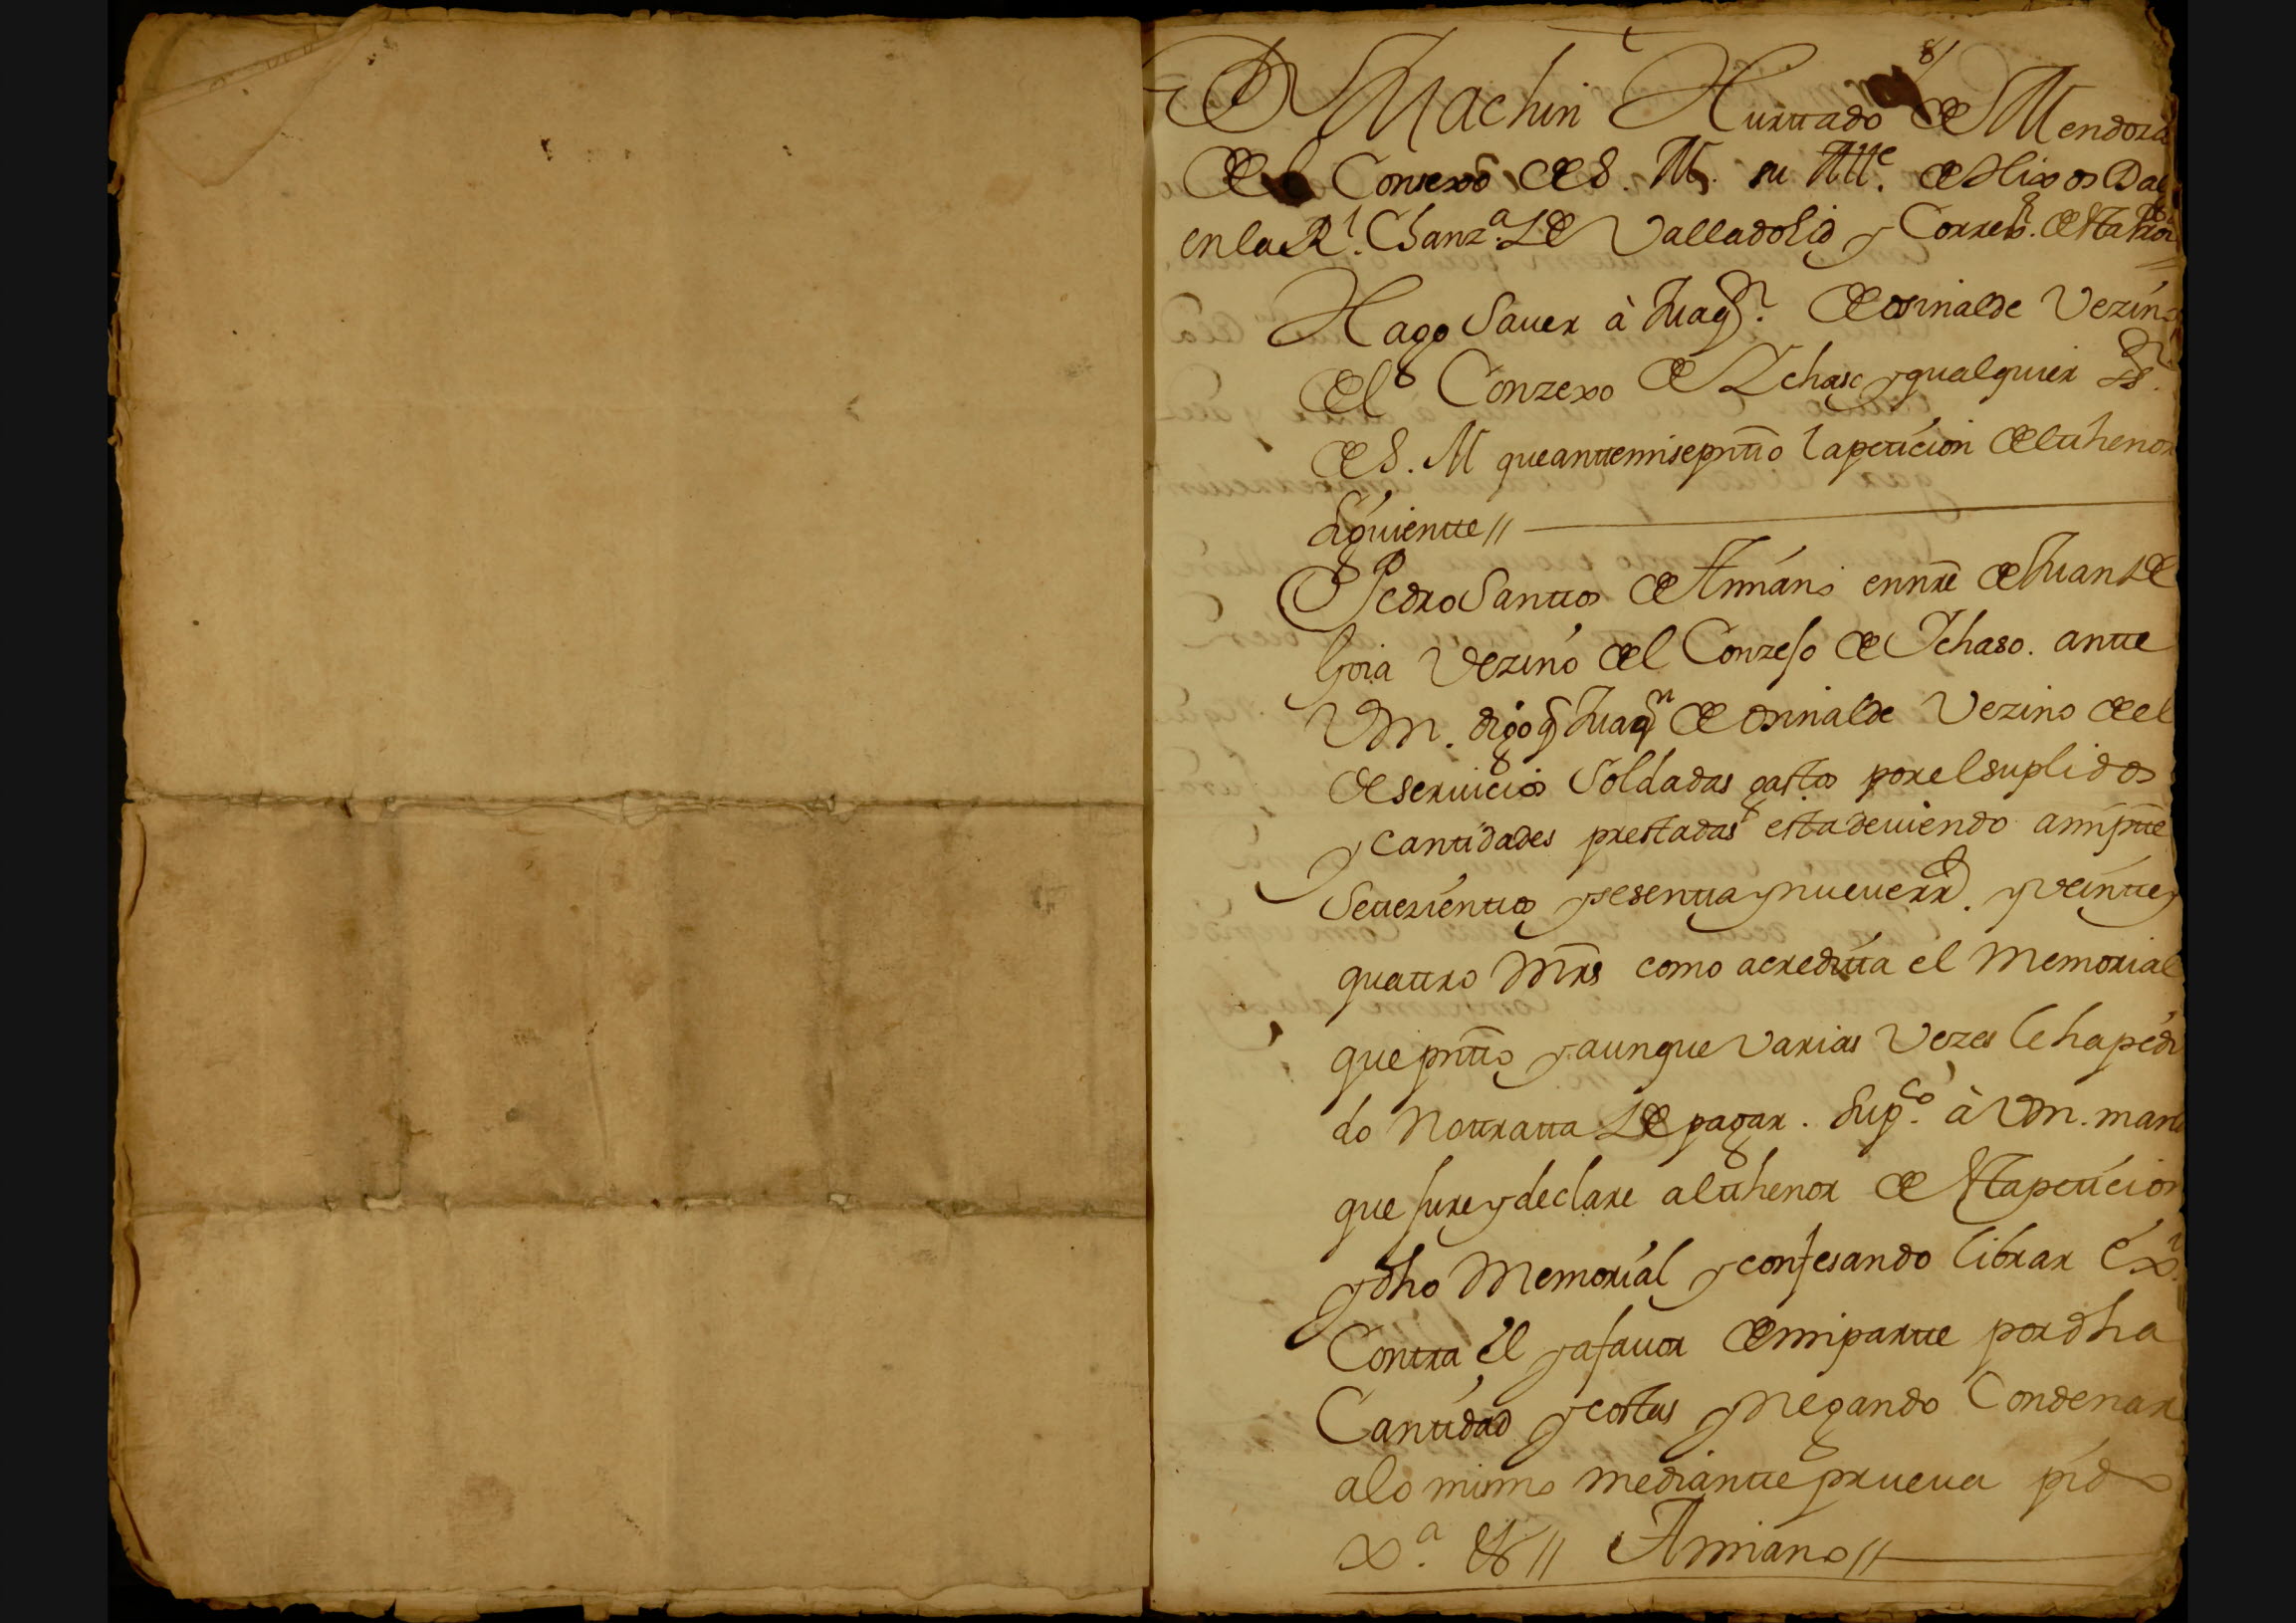 8/
Dn Machin Hurttado de Mendoza
del Consexo de S. M. su Alle. de Hixos Dal
en la Rl. Chanza. de Valladolid y Correxr. de esta
Hago Saver à Juaqn. de osinalde Vezino
del Conzexo de Ychaso y qualquier
de S. M que antte mi se prntto la peticion del thenor
Siguientte //
Pedro Santtos de Amiano en nre de Juan de
Goia Vezino del Conzejo de Ychaso. antte
Vm. digo q Juaqn de Osinalde Vezino de el
de servicios Soldadas gastos por el suplidos
y cantidades prestadas esta deviendo a mi ptte
Settezienttos y sesentta y nueve rrs. y veintte y
quattro Mrs como acreditta el Memorial
que prntto y aunque Varias Vezes le ha pedi
do No tratta de pagar. Supco. à Vm. mand
que jure y declare al thenor de esta peticion
y dho Memorial y confesando librar exn
Contra el y a favor de mi partte por dha
Cantidad y costas y negando Condenar
a lo mismo mediantte prueva pido
xa. & // Amiano //